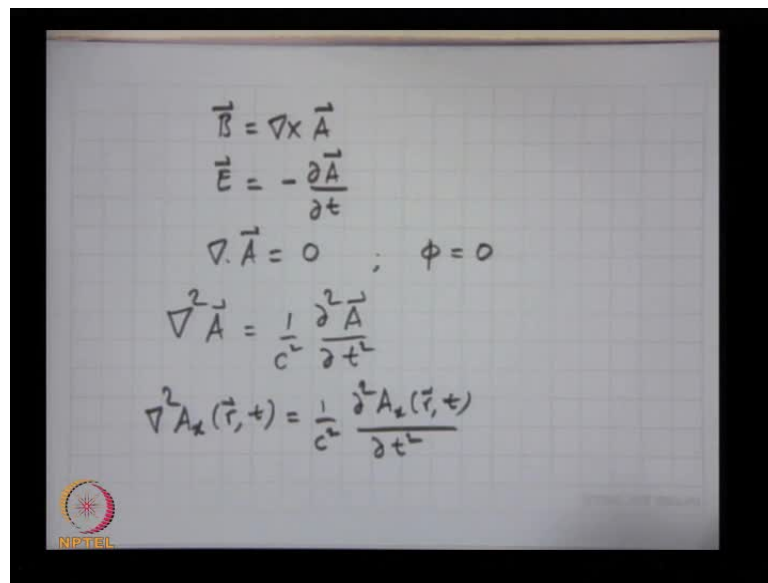 B⃗ = ∇× A⃗
E⃗ = - ∂A⃗/∂t
∇. A⃗ = 0 ; φ = 0
∇² A⃗ = 1/c² ∂²A⃗/∂t²
∇²Aₓ(r⃗, t) = 1/c² ∂²Aₓ(r⃗, t)/∂t²
NPTEL